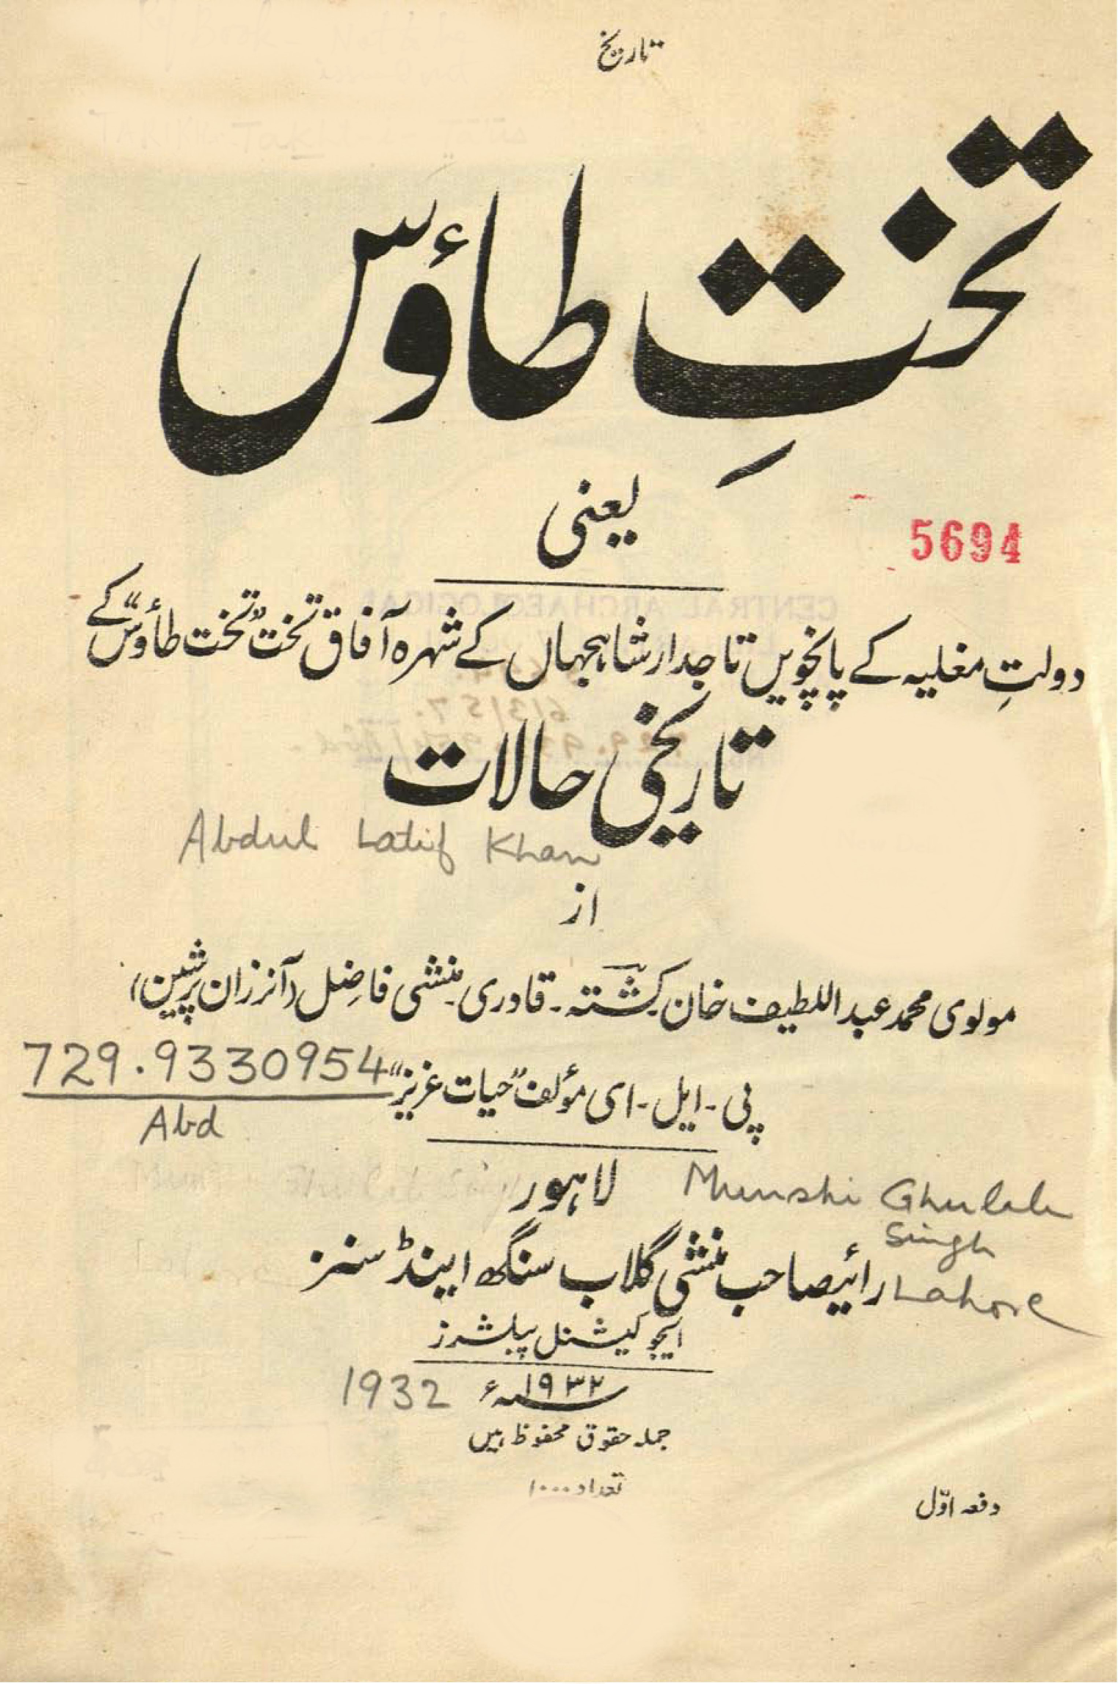 تاریخ
تختِ طاؤس
یعنی
5694
دولتِ مغلیہ کے پانچویں تاجدار شاہجہاں کے شہرہ آفاق تخت "تخت طاؤس" کے
تاریخی حالات
Abdul Latif Khan
از
مولوی محمد عبداللطیف خان کشتہ ۔ قادری ۔ منشی فاضل (آنرز ان پرشین)
پی ۔ ایل ۔ ای مؤلف "حیات عزیز"
729.9330954
Abd
لاہور
Munshi Ghulab
Singh
رائیصاحب منشی گلاب سنگھ اینڈ سنز
Lahore
ایجوکیشنل پبلشرز
۱۹۳۲ء
1932
جملہ حقوق محفوظ ہیں
تعداد ۱۰۰۰
دفعہ اوّل